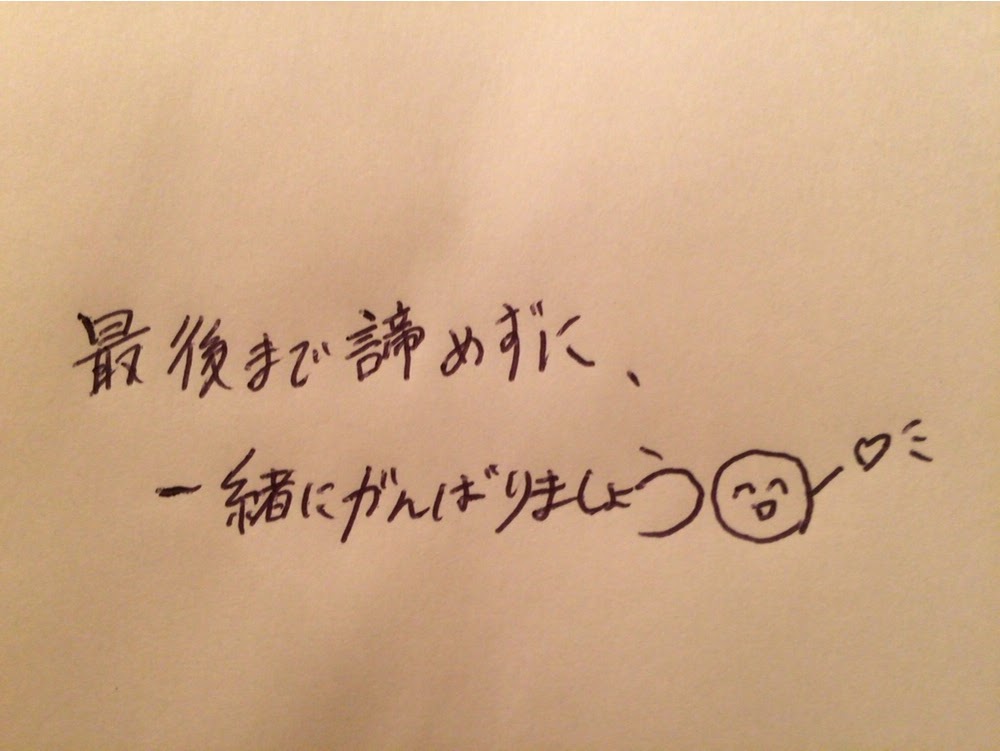 最後まで諦めずに、
一緒にがんばりましょう